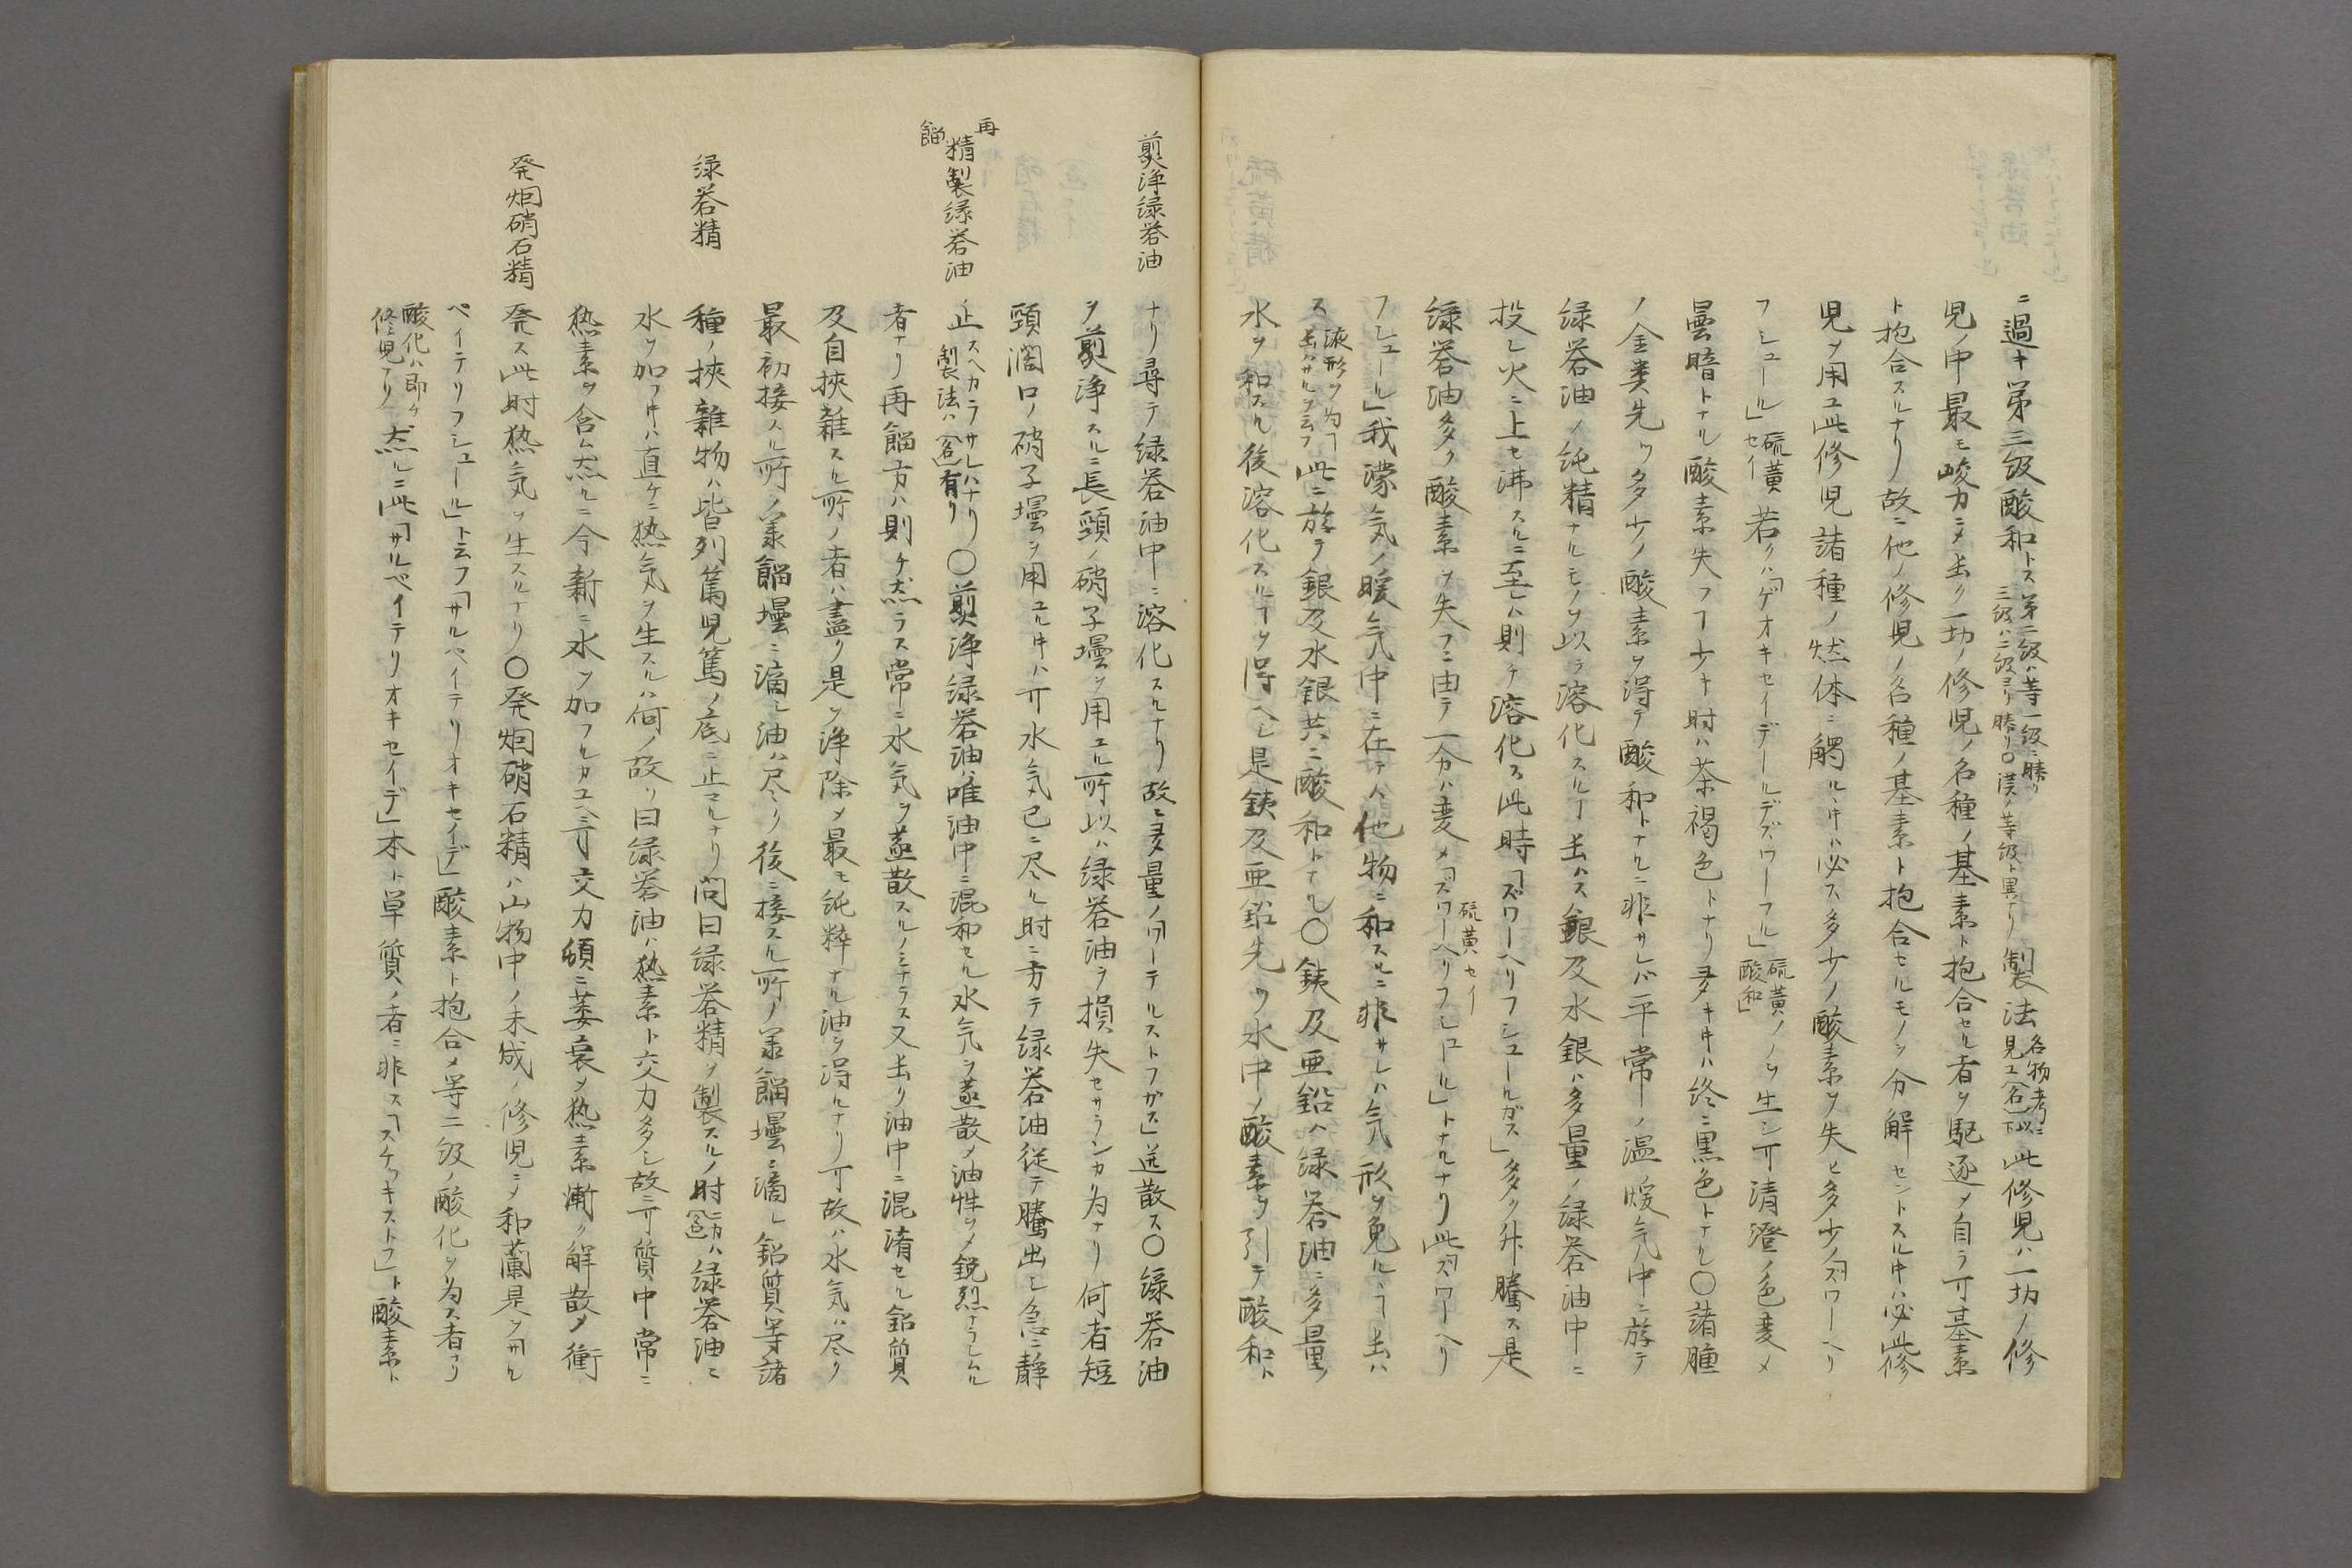 ニ過キ第三級酸和トス第二級ハ等一級ニ勝リ三級ハ二級ヨリ勝リ〇漢ノ等級ト異ナリ製法名物考ニ見ユ此修児ハ一切ノ修
児ノ中最モ峻力ニ〆一切ノ修児ノ名種ノ基素ト抱合セル者ヲ駆逐〆自ラ丌基素
ト抱合スルナリ故ニ他ノ修児ノ名種ノ基素ト抱合セルモノヲ分解セントスル𪜈必此修
児ヲ用ユ此修児諸種ノ燃体ニ觸ルヽキハ必ス多少ノ酸素ヲ失ヒ多少ノ「ズワーヘリ
フシュール」硫黄セイ若クハ「ゲオキセイデールデズワーフル」硫黄酸和ノヲ生シ丌清澄ノ色変〆
曇暗トナル酸素失フヿ少キ时ハ茶褐色トナリ多キキハ終ニ黒色トナル〇諸種
ノ金类先ツ多少ノ酸素ヲ得テ酸和トナルニ非サレバ平常ノ温煖気中ニ於テ
緑礬油ノ純精ナルモノヲ以テ溶化スルヿ銀及水銀ハ多量ノ緑礬油中ニ
投シ火ニ上セ沸スルニ至レハ則チ溶化ス此時「ズワーヘリフシュールガス」多ク升騰ス是
緑礬油多ク酸素ヲ失フニ由テ一分ハ変〆「ズワーヘリフシュール」硫黄セイトナルナリ此「ズワーヘリ
フシュール」我濛気ノ暖気中ニ在テハ他物ニ和スルニ非サレハ気形ヲ免ルヽヿ
ス液形ヲ为ヿ此ニ於テ銀及水銀共ニ酸和トナル〇鉄及亜鉛ハ緑礬油ニ多量ノ
水ヲ和スル後溶化スルヿヲ得ヘシ是鉄及亜鉛先ツ水中ノ酸素ヲ引テ酸和ト
煎浄緑礬油
ナリ尋テ緑礬油中ニ溶化スルナリ故ニ多量ノ「ワーテルストフガス」逬散ス〇緑礬油
ヲ煎浄スルニ長頸ノ硝子壜ヲ用ユル所以ハ緑礬油ヲ損失セサランカ为ナリ何者短
頸濶口ノ硝子壜ヲ用ユルキハ丌水気已ニ尽ル时ニ方テ緑礬油従テ騰出シ急ニ静
再餾精製緑礬油
止スヘカラサレハナリ製法ハ有リ〇煎浄緑礬油ハ唯油中ニ混和セル水気ヲ蒸散〆油性ヲ〆鋭烈ナラシムル
者ナリ再餾方ハ則チ然ラス常ニ水気ヲ蒸散スルノミナラス又油中ニ混淆セル鉛質
及自挟雑スル所ノ者ハ盡ク是ヲ浄除〆最モ純粋ナル油ヲ得ルナリ丌故ハ水気ハ尽ク
最初接スル所ノ羕餾壜ニ滴シ油ハ尽ク後ニ接スル所ノ羕餾壜ニ滴シ鉛質等諸
緑礬精
種ノ挟雑物ハ皆列篤児篤ノ底ニ止マルナリ問曰緑礬精ヲ製スルノ时ニ方ハ緑礬油ニ
水ヲ加フキハ直チニ熱気ヲ生スルハ何ノ故ソ曰緑礬油ハ熱素ト交力多シ故ニ丌質中常ニ
熱素ヲ含ム然ルニ今新ニ水ヲ加フルカユヘニ丌交力頓ニ萎衰〆熱素漸ク解散〆衝
発烟硝石精
発ス此时熱気ヲ生スルナリ〇発烟硝石精ハ山物中ノ未成ノ修児ニ〆和蘭是ヲ「サル
ペイテリフシュール」ト云フ「サルペイテリオキセイデ」酸素ト抱合〆等二級ノ酸化ヲ为ス者ナリ
酸化ハ即チ修児ナリ然ルニ此「サルペイテリオキセイデ」本ト単質ノ者ニ非ス「スチッキストフ」ト酸素ト